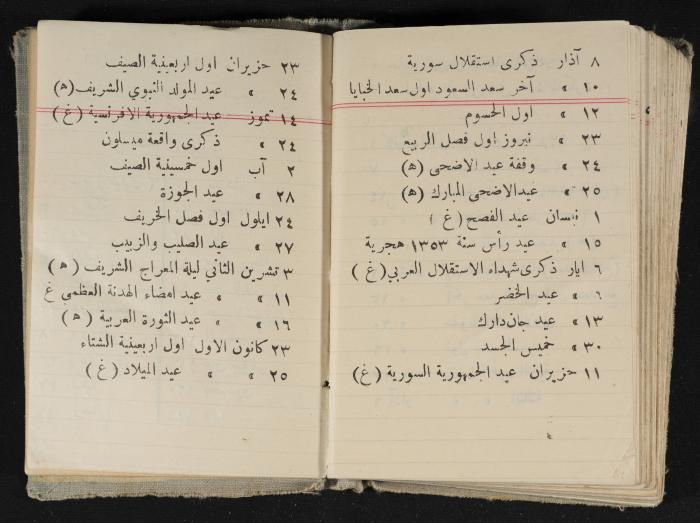 ٨ آذار ذكرى استقلال سورية
١٠ » آخر سعد السعود اول سعد الخبايا
١٢ » اول الحسوم
٢٣ » نيروز اول فصل الربيع
٢٤ » وقفة عيد الاضحى (ه)
٢٥ » عيد الاضحى المبارك (ه)
١ نيسان عيد الفصح (غ)
١٥ » عيد رأس سنة ١٣٥٣ هجرية
٦ ايار ذكرى شهداء الاستقلال العربي (غ)
٦ » عيد الخضر
١٣ » عيد جان دارك
٣٠ » خميس الجسد
١١ حزيران عيد الجمهورية السورية (غ)
٢٣ حزيران اول اربعينية الصيف
٢٤ » عيد المولد النبوي الشريف (ه)
١٤ تموز عيد الجمهورية الافرنسية (غ)
٢٤ » ذكرى واقعة ميسلون
٢ آب اول خمسينية الصيف
٢٨ » عيد الجوزة
٢٤ ايلول اول فصل الخريف
٢٧ » عيد الصليب والزبيب
٣ تشرين الثاني ليلة المعراج الشريف (ه)
١١ » » عيد امضاء الهدنة العظمى غ
١٦ » » عيد الثورة العربية (ه)
٢٣ كانون الاول اول اربعينية الشتاء
٢٥ » » عيد الميلاد (غ)